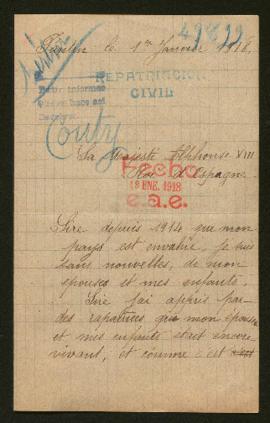 le 1er Janvier 1918,
REPATRIACION
CIVIL
Couty
Sa Majesté Alphonse XIII
Roi d'Espagne
Fecho
18 ENE. 1918
e.a.e.
Sire depuis 1914 que mon
pays est envahie, je suis
sans nouvelles, de mon
epouse et mes enfants.
Sire j'ai appris par
des rapatriées que mon epouse
et mes enfants etait encore
vivant, et comme c'est